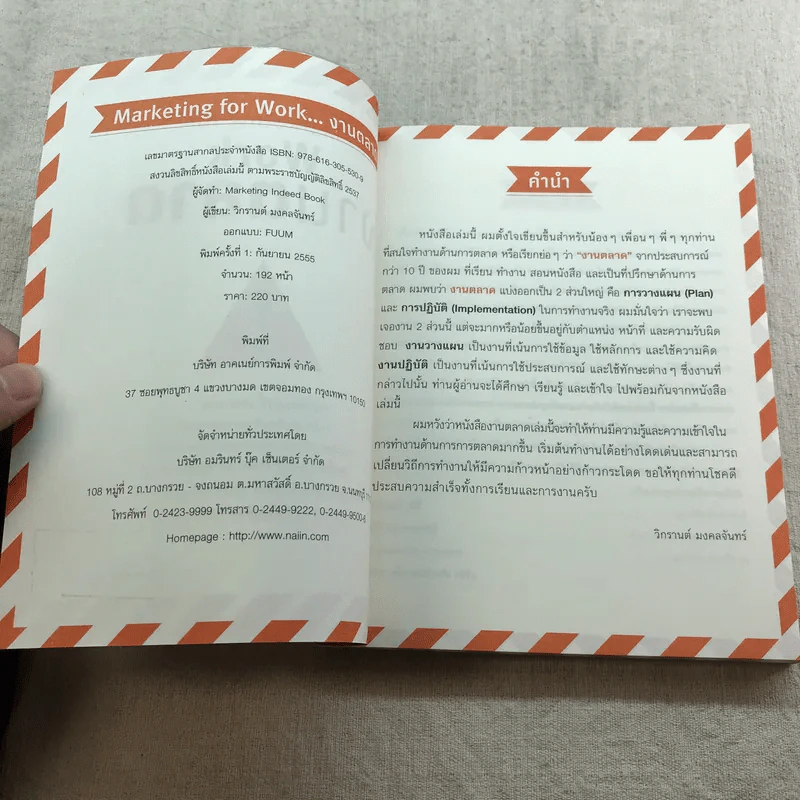 Marketing for Work... งานตลาด
เลขมาตรฐานสากลประจำหนังสือ ISBN: 978-616-305-530-9
สงวนลิขสิทธิ์หนังสือเล่มนี้ ตามพระราชบัญญัติลิขสิทธิ์ 2537
ผู้จัดทำ: Marketing Indeed Book
ผู้เขียน: วิกรานต์ มงคลจันทร์
ออกแบบ: FUUM
พิมพ์ครั้งที่ 1: กันยายน 2555
จำนวน: 192 หน้า
ราคา: 220 บาท
พิมพ์ที่
บริษัท อาคเนย์การพิมพ์ จำกัด
37 ซอยพุทธบูชา 4 แขวงบางมด เขตจอมทอง กรุงเทพฯ 10150
จัดจำหน่ายทั่วประเทศโดย
บริษัท อมรินทร์ บุ๊ค เซ็นเตอร์ จำกัด
108 หมู่ที่ 2 ถ.บางกรวย - จงถนอม ต.มหาสวัสดิ์ อ.บางกรวย จ.นนทบุรี
โทรศัพท์ 0-2423-9999 โทรสาร 0-2449-9222, 0-2449-9500-6
Homepage : http://www.naiin.com
คำนำ
หนังสือเล่มนี้ ผมตั้งใจเขียนขึ้นสำหรับน้อง ๆ เพื่อน ๆ พี่ ๆ ทุกท่าน
ที่สนใจทำงานด้านการตลาด หรือเรียกย่อ ๆ ว่า "งานตลาด" จากประสบการณ์
กว่า 10 ปี ของผม ที่เรียน ทำงาน สอนหนังสือ และเป็นที่ปรึกษาด้านการ
ตลาด ผมพบว่า งานตลาด แบ่งออกเป็น 2 ส่วนใหญ่ คือ การวางแผน (Plan)
และ การปฏิบัติ (Implementation) ในการทำงานจริง ผมมั่นใจว่า เราจะพบ
เจองาน 2 ส่วนนี้ แต่จะมากหรือน้อยขึ้นอยู่กับตำแหน่ง หน้าที่ และความรับผิด
ชอบ งานวางแผน เป็นงานที่เน้นการใช้ข้อมูล ใช้หลักการ และใช้ความคิด
งานปฏิบัติ เป็นงานที่เน้นการใช้ประสบการณ์ และใช้ทักษะต่าง ๆ ซึ่งงานที่
กล่าวไปนั้น ท่านผู้อ่านจะได้ศึกษา เรียนรู้ และเข้าใจ ไปพร้อมกันจากหนังสือ
เล่มนี้
ผมหวังว่าหนังสืองานตลาดเล่มนี้จะทำให้ท่านมีความรู้และความเข้าใจใน
การทำงานด้านการการตลาดมากขึ้น เริ่มต้นทำงานได้อย่างโดดเด่นและสามารถ
เปลี่ยนวิถีการทำงานให้มีความก้าวหน้าอย่างก้าวกระโดด ขอให้ทุกท่านโชคดี
ประสบความสำเร็จทั้งการเรียนและการงานครับ
วิกรานต์ มงคลจันทร์